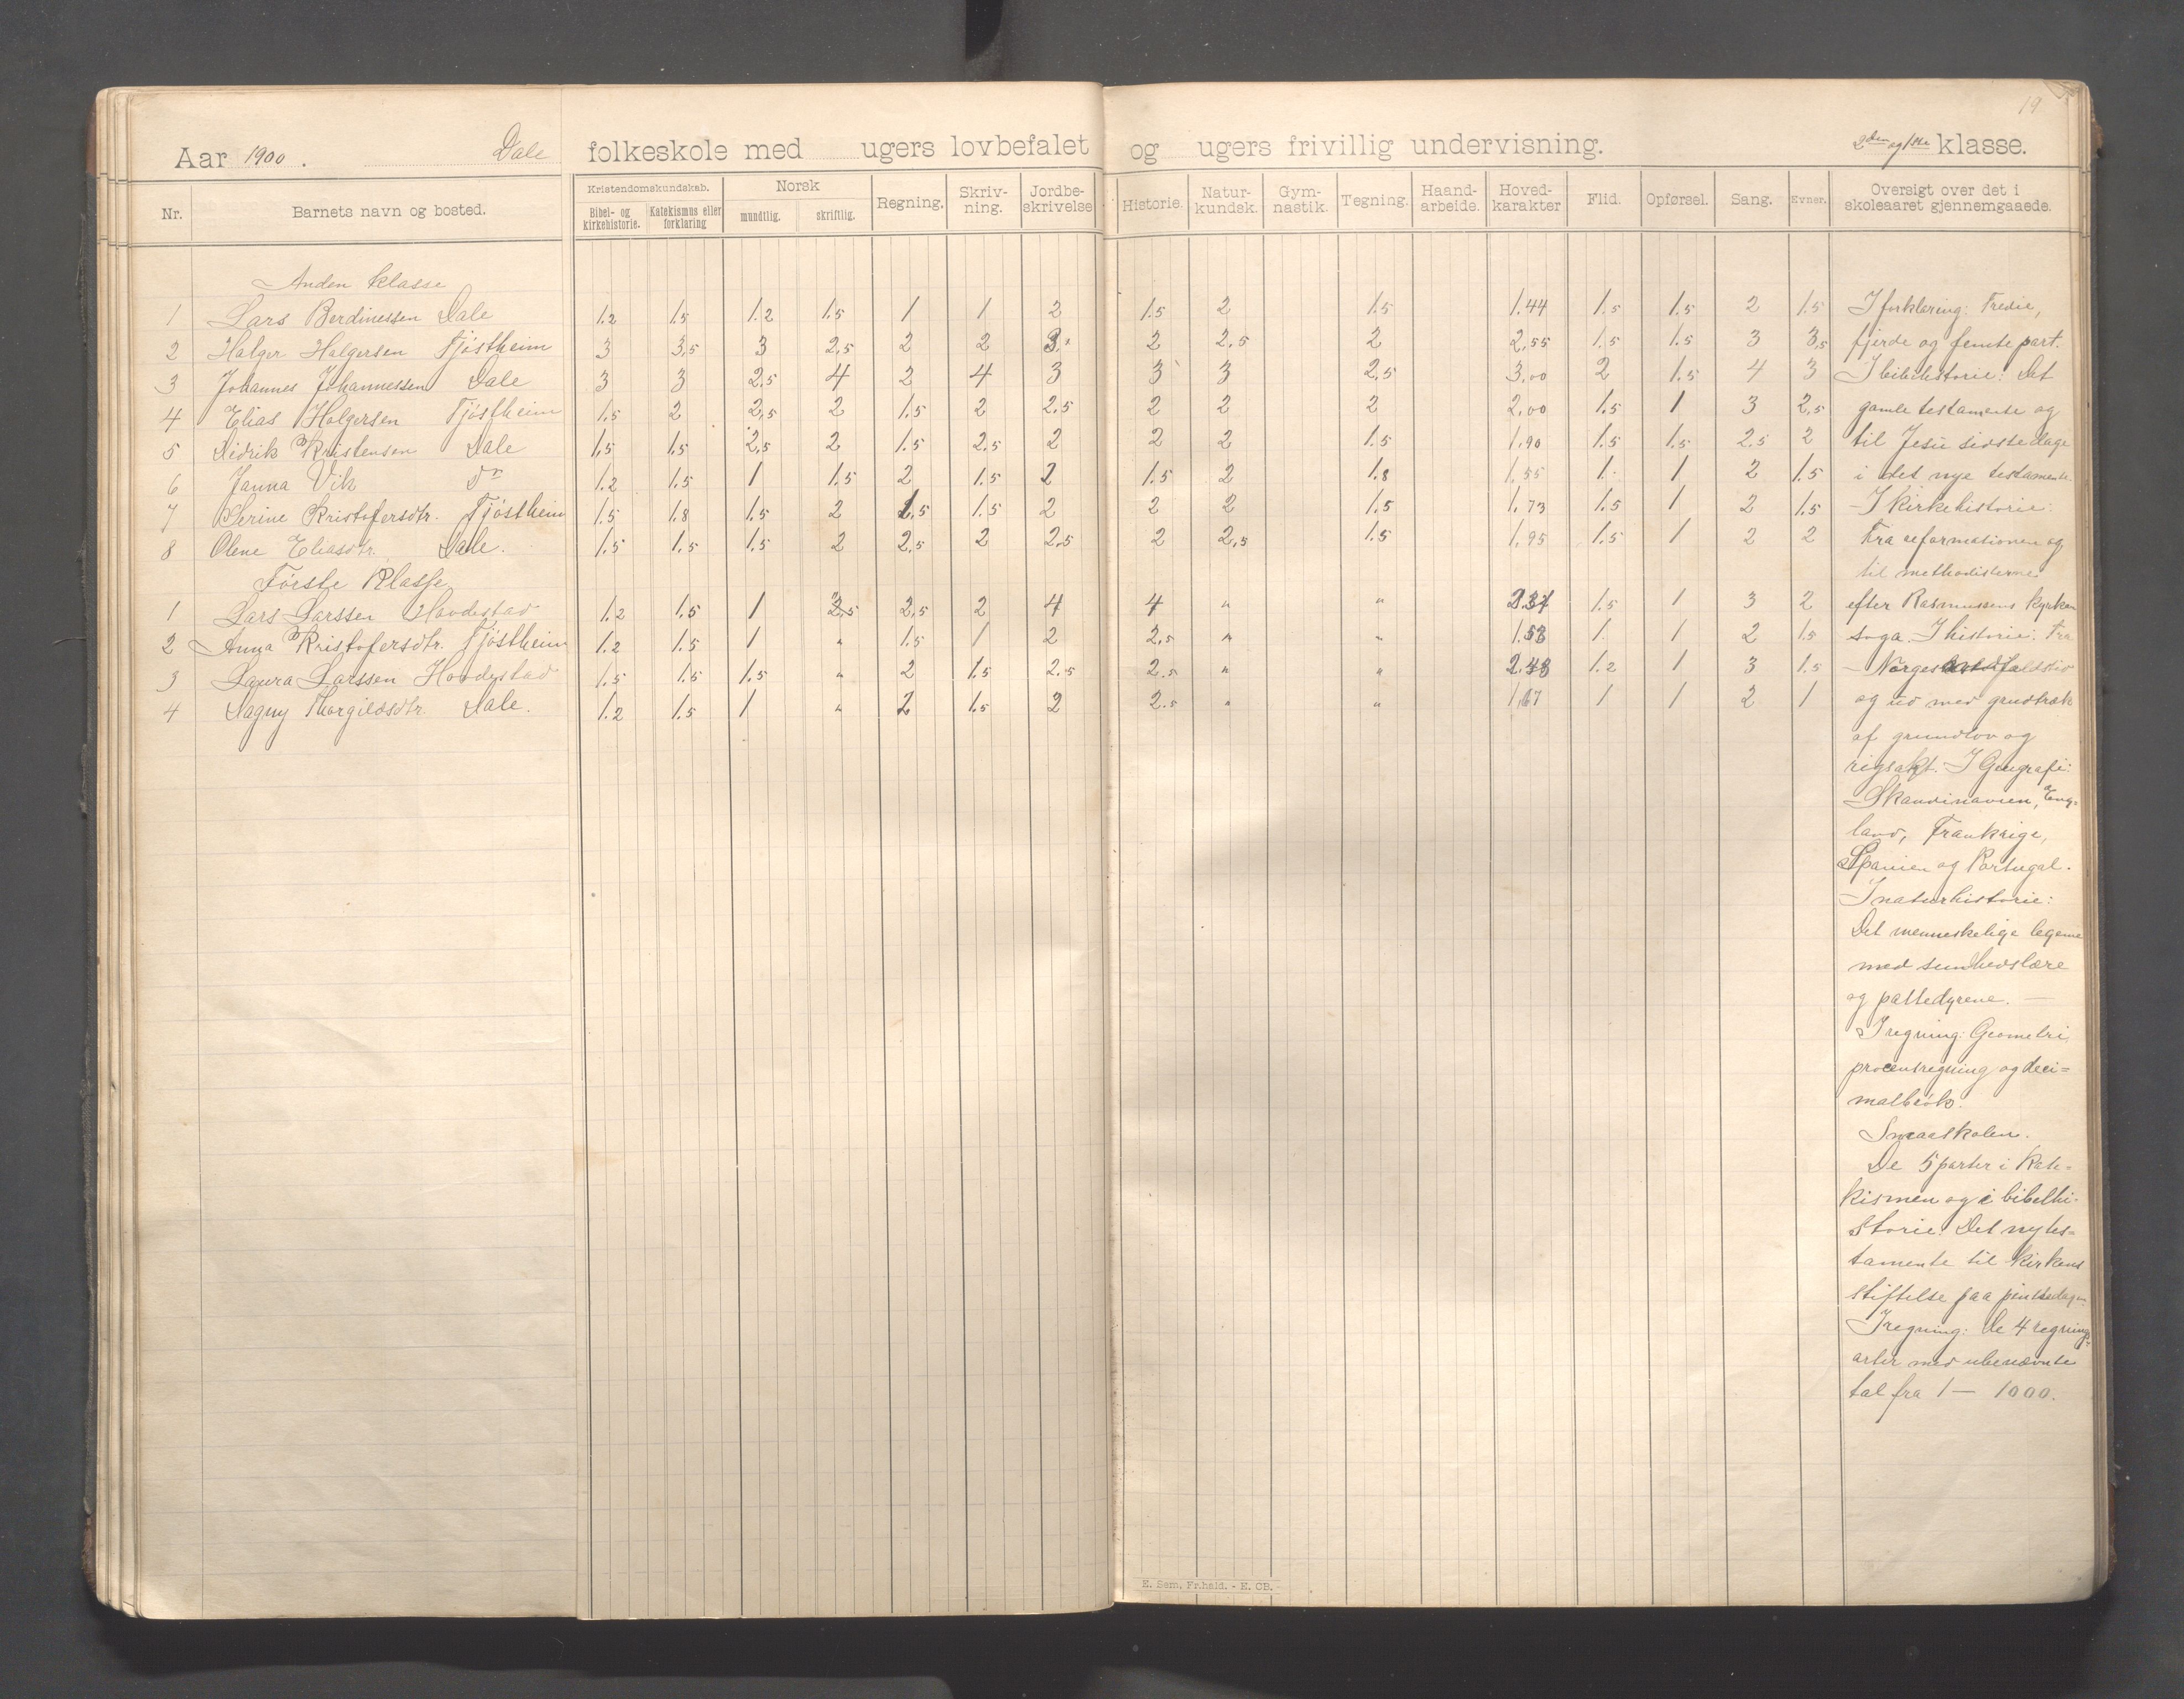 19
Aar 1900. Dale folkeskole med ugers lovbefalet og ugers frivillig undervisning. 2den og 1ste klasse.
Nr. Barnets navn og bosted. Kristendomskundskab. Bibel- og kirkehistorie. Katekismus eller forklaring Norsk mundtlig. skriftlig. Regning. Skriv-ning. Jordbe-skrivelse Historie. Natur-kundsk. Gym-nastik. Tegning. Haand-arbeide. Hoved-karakter Flid. Opførsel. Sang. Evner. Oversigt over det i skoleaaret gjennemgaaede.
Anden klasse
1 Lars Berdinessen Dale 1.2 1.5 1.2 1.5 1 1 2 1.5 2 1.5 1.44 1.5 1.5 2 1.5 I forklaring: Tredie,
2 Holger Holgersen Tjøstheim 3 3,5 3 2,5 2 2 3. 2 2.5 2 2,55 1.5 1.5 3 3,5 fjerde og femte part.
3 Johannes Johannessen Dale 3 3 2,5 4 2 4 3 3 3 2,5 3,00 2 1.5 4 3 I bibelhistorie: Det
4 Elias Holgersen Tjøstheim 1,5 2 2,5 2 1.5 2 2.5 2 2 2 2,00 1.5 1 3 2,5 gamle testamente og
5 Didrik Kristensen Dale 1,5 1.5 2,5 2 1.5 2.5 2 2 2 1.5 1,90 1.5 1.5 2.5 2 til Jesu sidste dage
6 Janna Vik do 1.2 1.5 1 1.5 2 1.5 2 1.5 2 1.8 1,55 1. 1 2 1.5 i det nye testamente.
7 Serine Kristofersdtr. Tjøstheim 1.5 1.8 1.5 2 1,5 1.5 2 2 2 1.5 1,73 1.5 1 2 1.5 I kirkehistorie:
8 Olene Eliasdtr. Dale. 1.5 1.5 1.5 2 2,5 2 2.5 2 2,5 1.5 1,95 1.5 1 2 2 Fra reformationen og
Første Klasse. til methodisterne
1 Lars Larssen Hovdestad 1.2 1.5 1 2,5 2 4 4 " " 1.5 1 3 2 efter Rasmussens kyrkju
2 Anna Kristofersdtr. Tjøstheim 1.2 1.5 1 " 1.5 1 2 2.5 " " 1.58 1. 1 2 1.5 soga. I historie: Fra
3 Laura Larssen Hovdestad 1.5 1.5 1.5 " 2 1.5 2.5 2.5 " " 2.48 1.2 1 3 1.5 Norges
4 Dagny Thorgilsdtr. Dale. 1.2 1.5 1 " 2 1.5 2 2.5 " " 1,67 1 1 2 1 og ud med grundtræk
af grundlov og
rigsakt. I Geografi:
Skandinavien, Eng-
land, Frankrige,
Spanien og Portugal.
I naturhistorie:
Det menneskelige legeme
med sundhedslære
og pattedyrene. —
I regning: Geometri,
procentregning og deci=
malbrøk.
Smaaskolen.
De 5 parter i Kate=
kismen og i bibelhi-
storie: Det nytes=
tamente til kirkens
stiftelse paa pintsedagen.
I regning: De 4 regnings=
arter med ubenævnte
tal fra 1 — 1000.
E. Sem, Fr.hald. - E. CB.